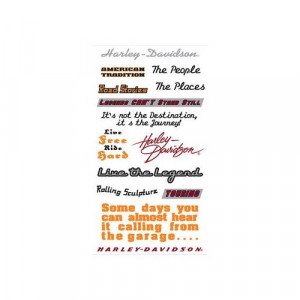 Harley-Davidson
AMERICAN TRADITION
The People
Road Stories
The Places
Legends CAN'T Stand Still
It's not the Destination,
it s the Journey!
Live
Free
Ride
Hard
Harley-
Davidson
Live the Legend
Rolling Sculpture
TOURING
Some days you
can almost hear
it calling from
the garage....
HARLEY-DAVIDSON